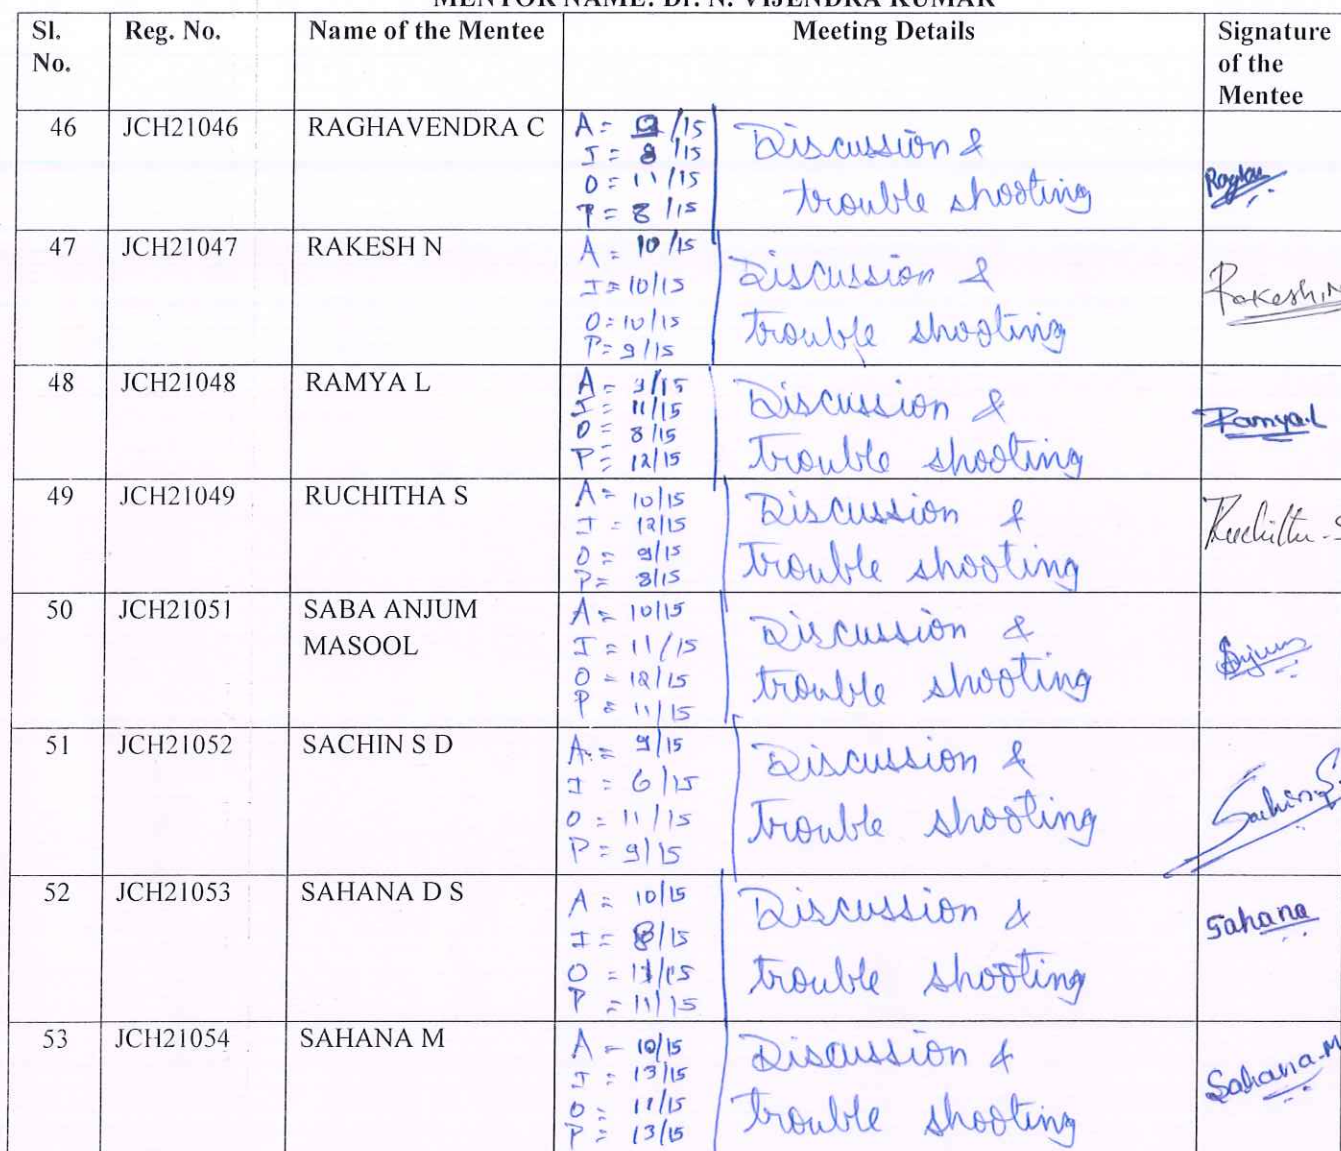 MENTOR NAME: Dr. N. VIJENDRA KUMAR
Sl. No. Reg. No. Name of the Mentee Meeting Details Signature of the Mentee
46 JCH21046 RAGHAVENDRA C
A = /15
I = 8/15
O = 11/15
P = 8/15
Discussion &
trouble shooting
Raghu
47 JCH21047 RAKESH N
A = 10/15
I = 10/15
O = 10/15
P = 9/15
Discussion &
trouble shooting
Rakesh.N
48 JCH21048 RAMYA L
A = 9/15
I = 11/15
O = 8/15
P = 12/15
Discussion &
trouble shooting
Ramya.L
49 JCH21049 RUCHITHA S
A = 10/15
I = 12/15
O = 9/15
P = 8/15
Discussion &
trouble shooting
Ruchitha.S
50 JCH21051 SABA ANJUM
MASOOL
A = 10/15
I = 11/15
O = 12/15
P = 11/15
Discussion &
trouble shooting
51 JCH21052 SACHIN S D
A = 9/15
I = 6/15
O = 11/15
P = 9/15
Discussion &
trouble shooting
52 JCH21053 SAHANA D S
A = 10/15
I = 8/15
O = 11/15
P = 11/15
Discussion &
trouble shooting
Sahana
53 JCH21054 SAHANA M
A = 10/15
I = 13/15
O = 11/15
P = 13/15
Discussion &
trouble shooting
Sahana.M